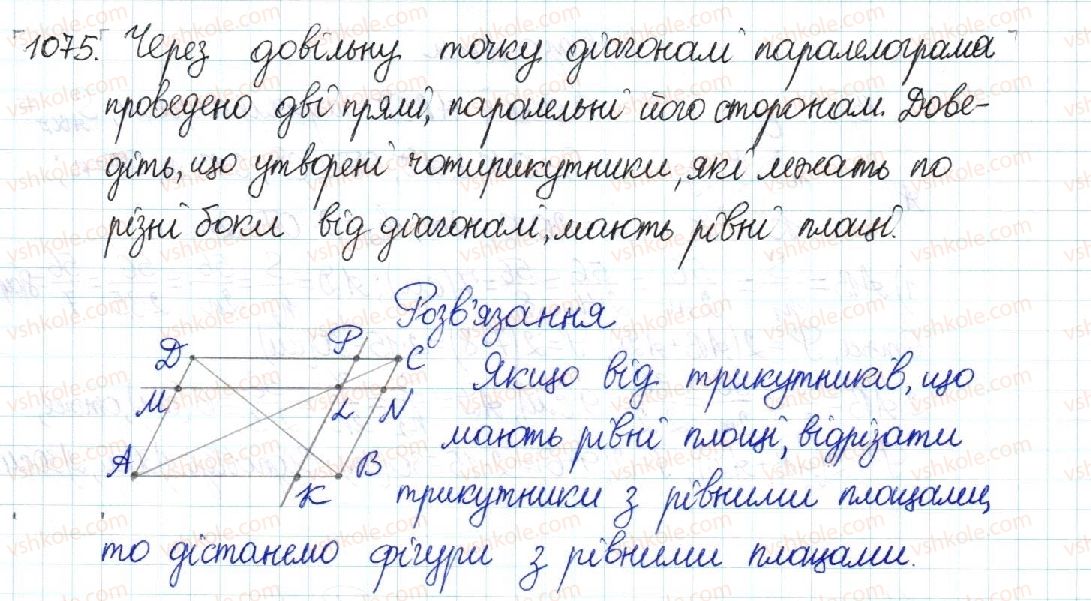 1075. Через довільну точку діагоналі паралелограма
проведено дві прямі, паралельні його сторонам. Дове-
діть, що утворені чотирикутники, які лежать по
різні боки від діагоналі, мають рівні площі.
Розв'язання
D P C
M L N
A K B
Якщо від трикутників, що
мають рівні площі, відрізати
трикутники з рівними площами,
то дістанемо фігури з рівними площами.